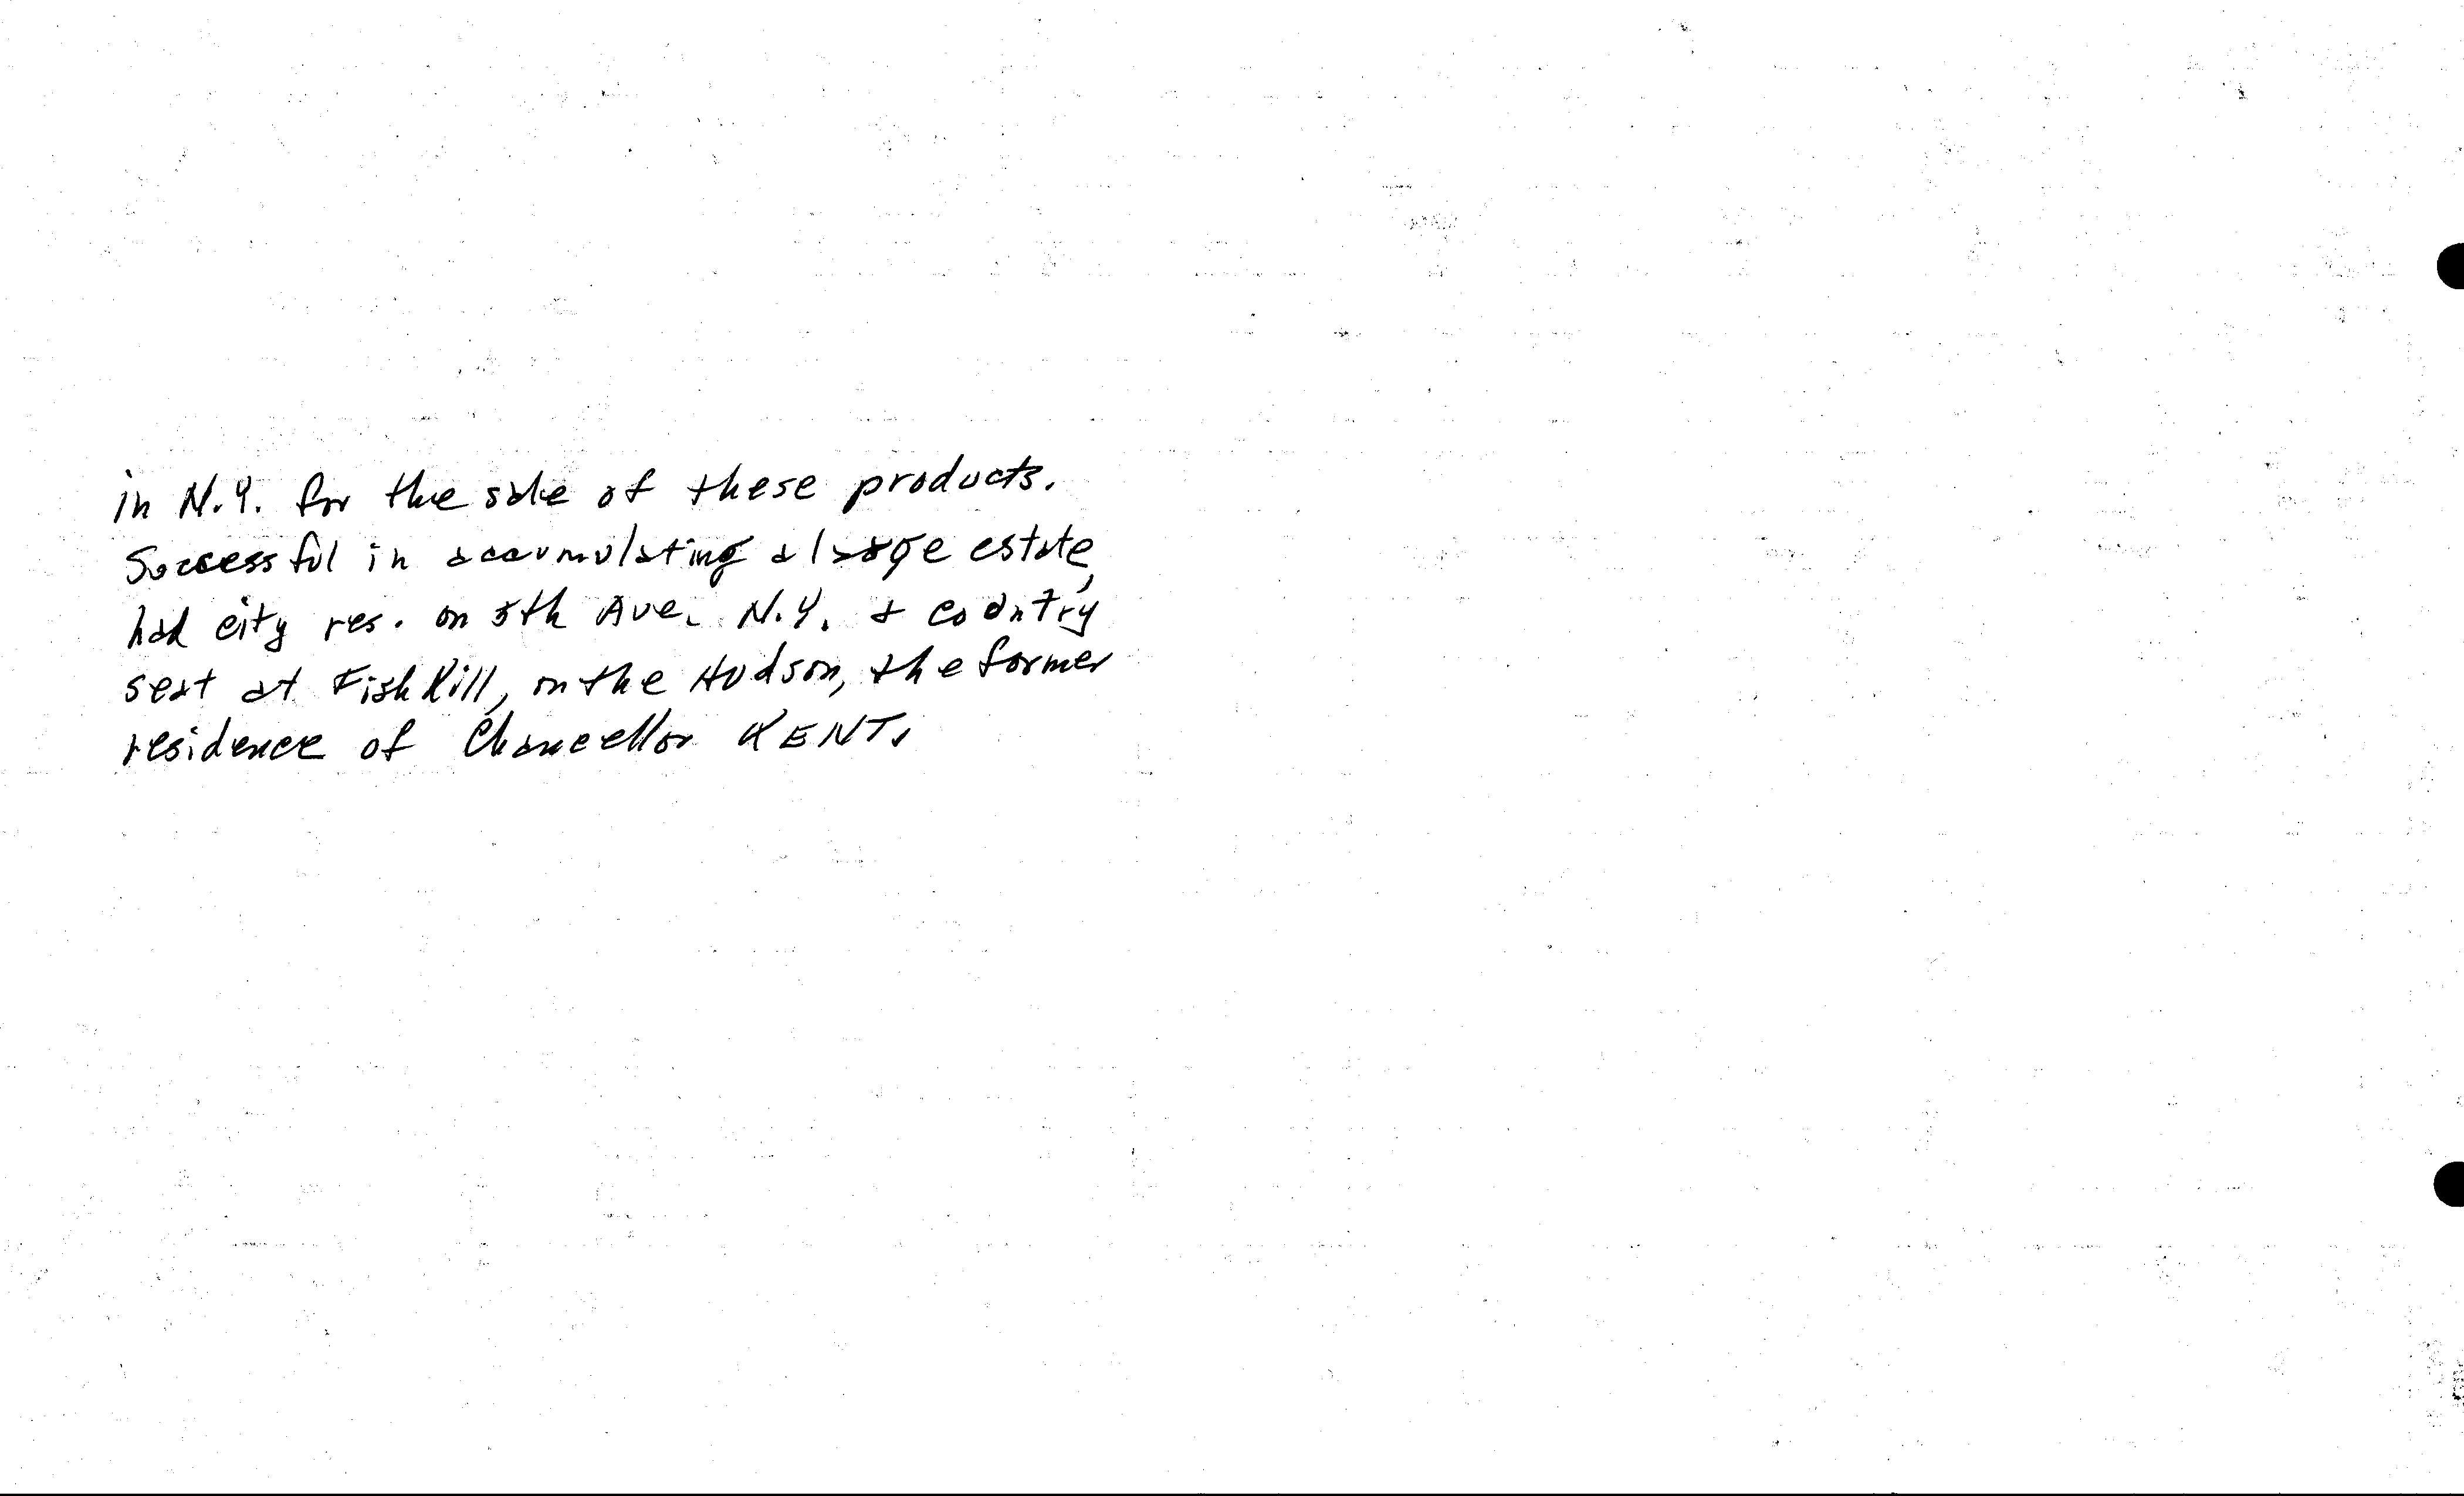 in N.Y. for the sale of these products.
Successful in accumulating a large estate,
had city res. on 5th Ave. N.Y. & country
seat at Fishkill, on the Hudson, the former
residence of Chancellor KENT.